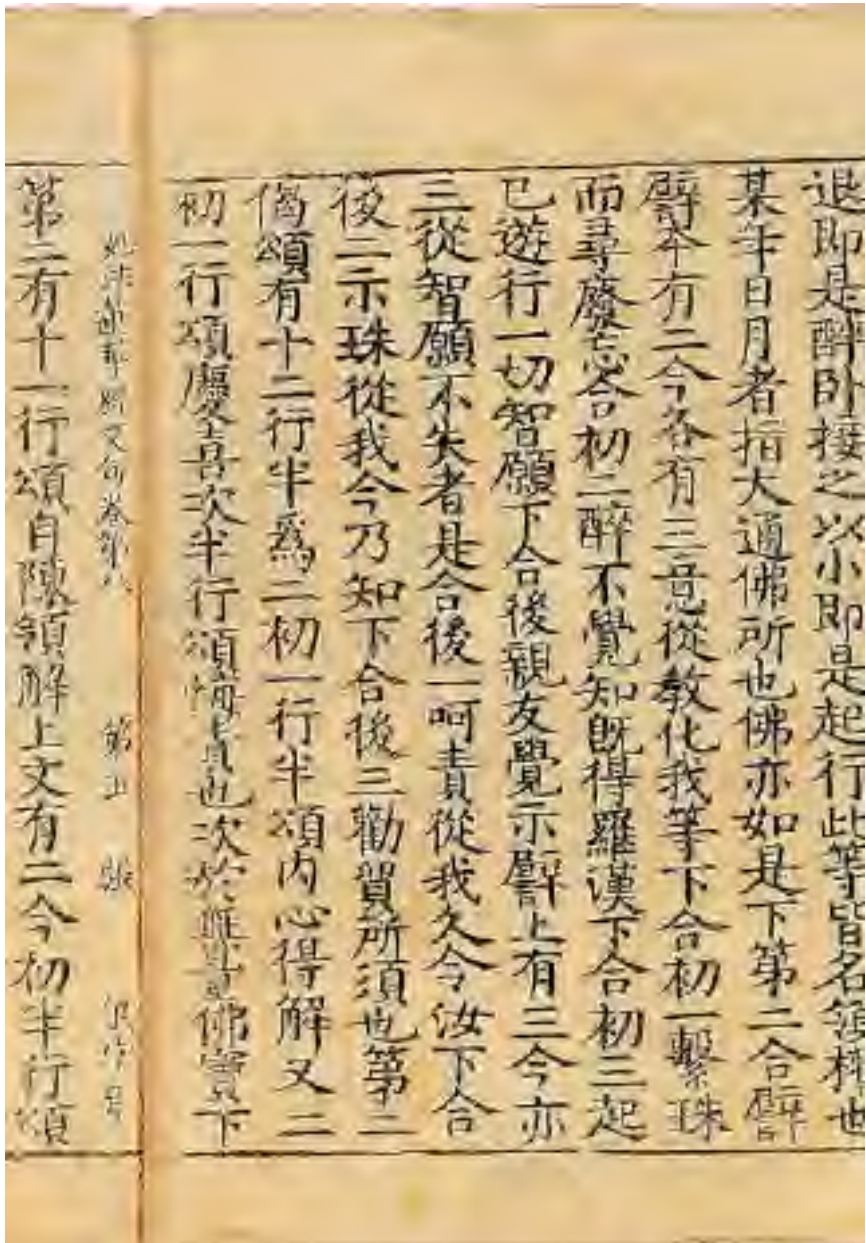 退即是醉卧接之以小即是起行此等皆名
某年日月者指大通佛所也佛亦如是下第二合譬
譬本有二今各有三意從教化我等下合初一繫珠
而尋廢忘合初二醉不覺知既得羅漢下合初三起
已遊行一切智願下合後親友覺示譬上有三今亦
三從智願不失者是合後一呵責從我久令汝下合
後二示珠從我今乃知下合後三勸貿所須也第二
偈頌有十二行半為二初一行半頌內心得解又二
初一行頌慶喜次半行頌悔責也次於無量佛寶下
妙法蓮華經文句卷第八 第 張
第二有十一行頌自陳領解上文有二今初半行頌